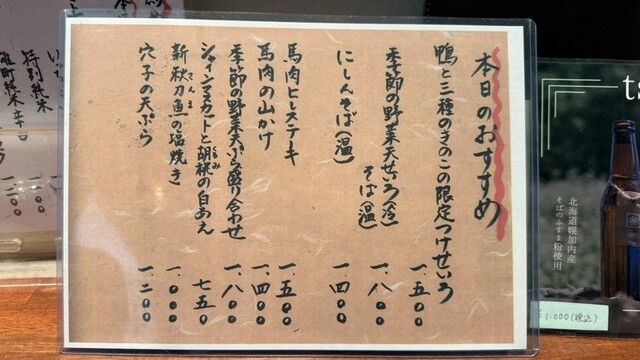 本日のおすすめ
鴨と三種のきのこの限定つけせいろ 一、五〇〇
季節の野菜天せいろ(冷)
そば(温) 一、八〇〇
にしんそば(温) 一、四〇〇
馬肉ヒレステーキ 一、五〇〇
馬肉の山かけ 一、四〇〇
季節の野菜天ぷら盛り合わせ 一、八〇〇
シャインマスカットと胡桃の白あえ 七五〇
くるみ
新秋刀魚の塩焼き 一、〇〇〇
さんま
穴子の天ぷら 一、二〇〇
特別純米
雄町純米辛口
ts
北海道幌加内産
そばのふすま粉使用
1,000(税込)